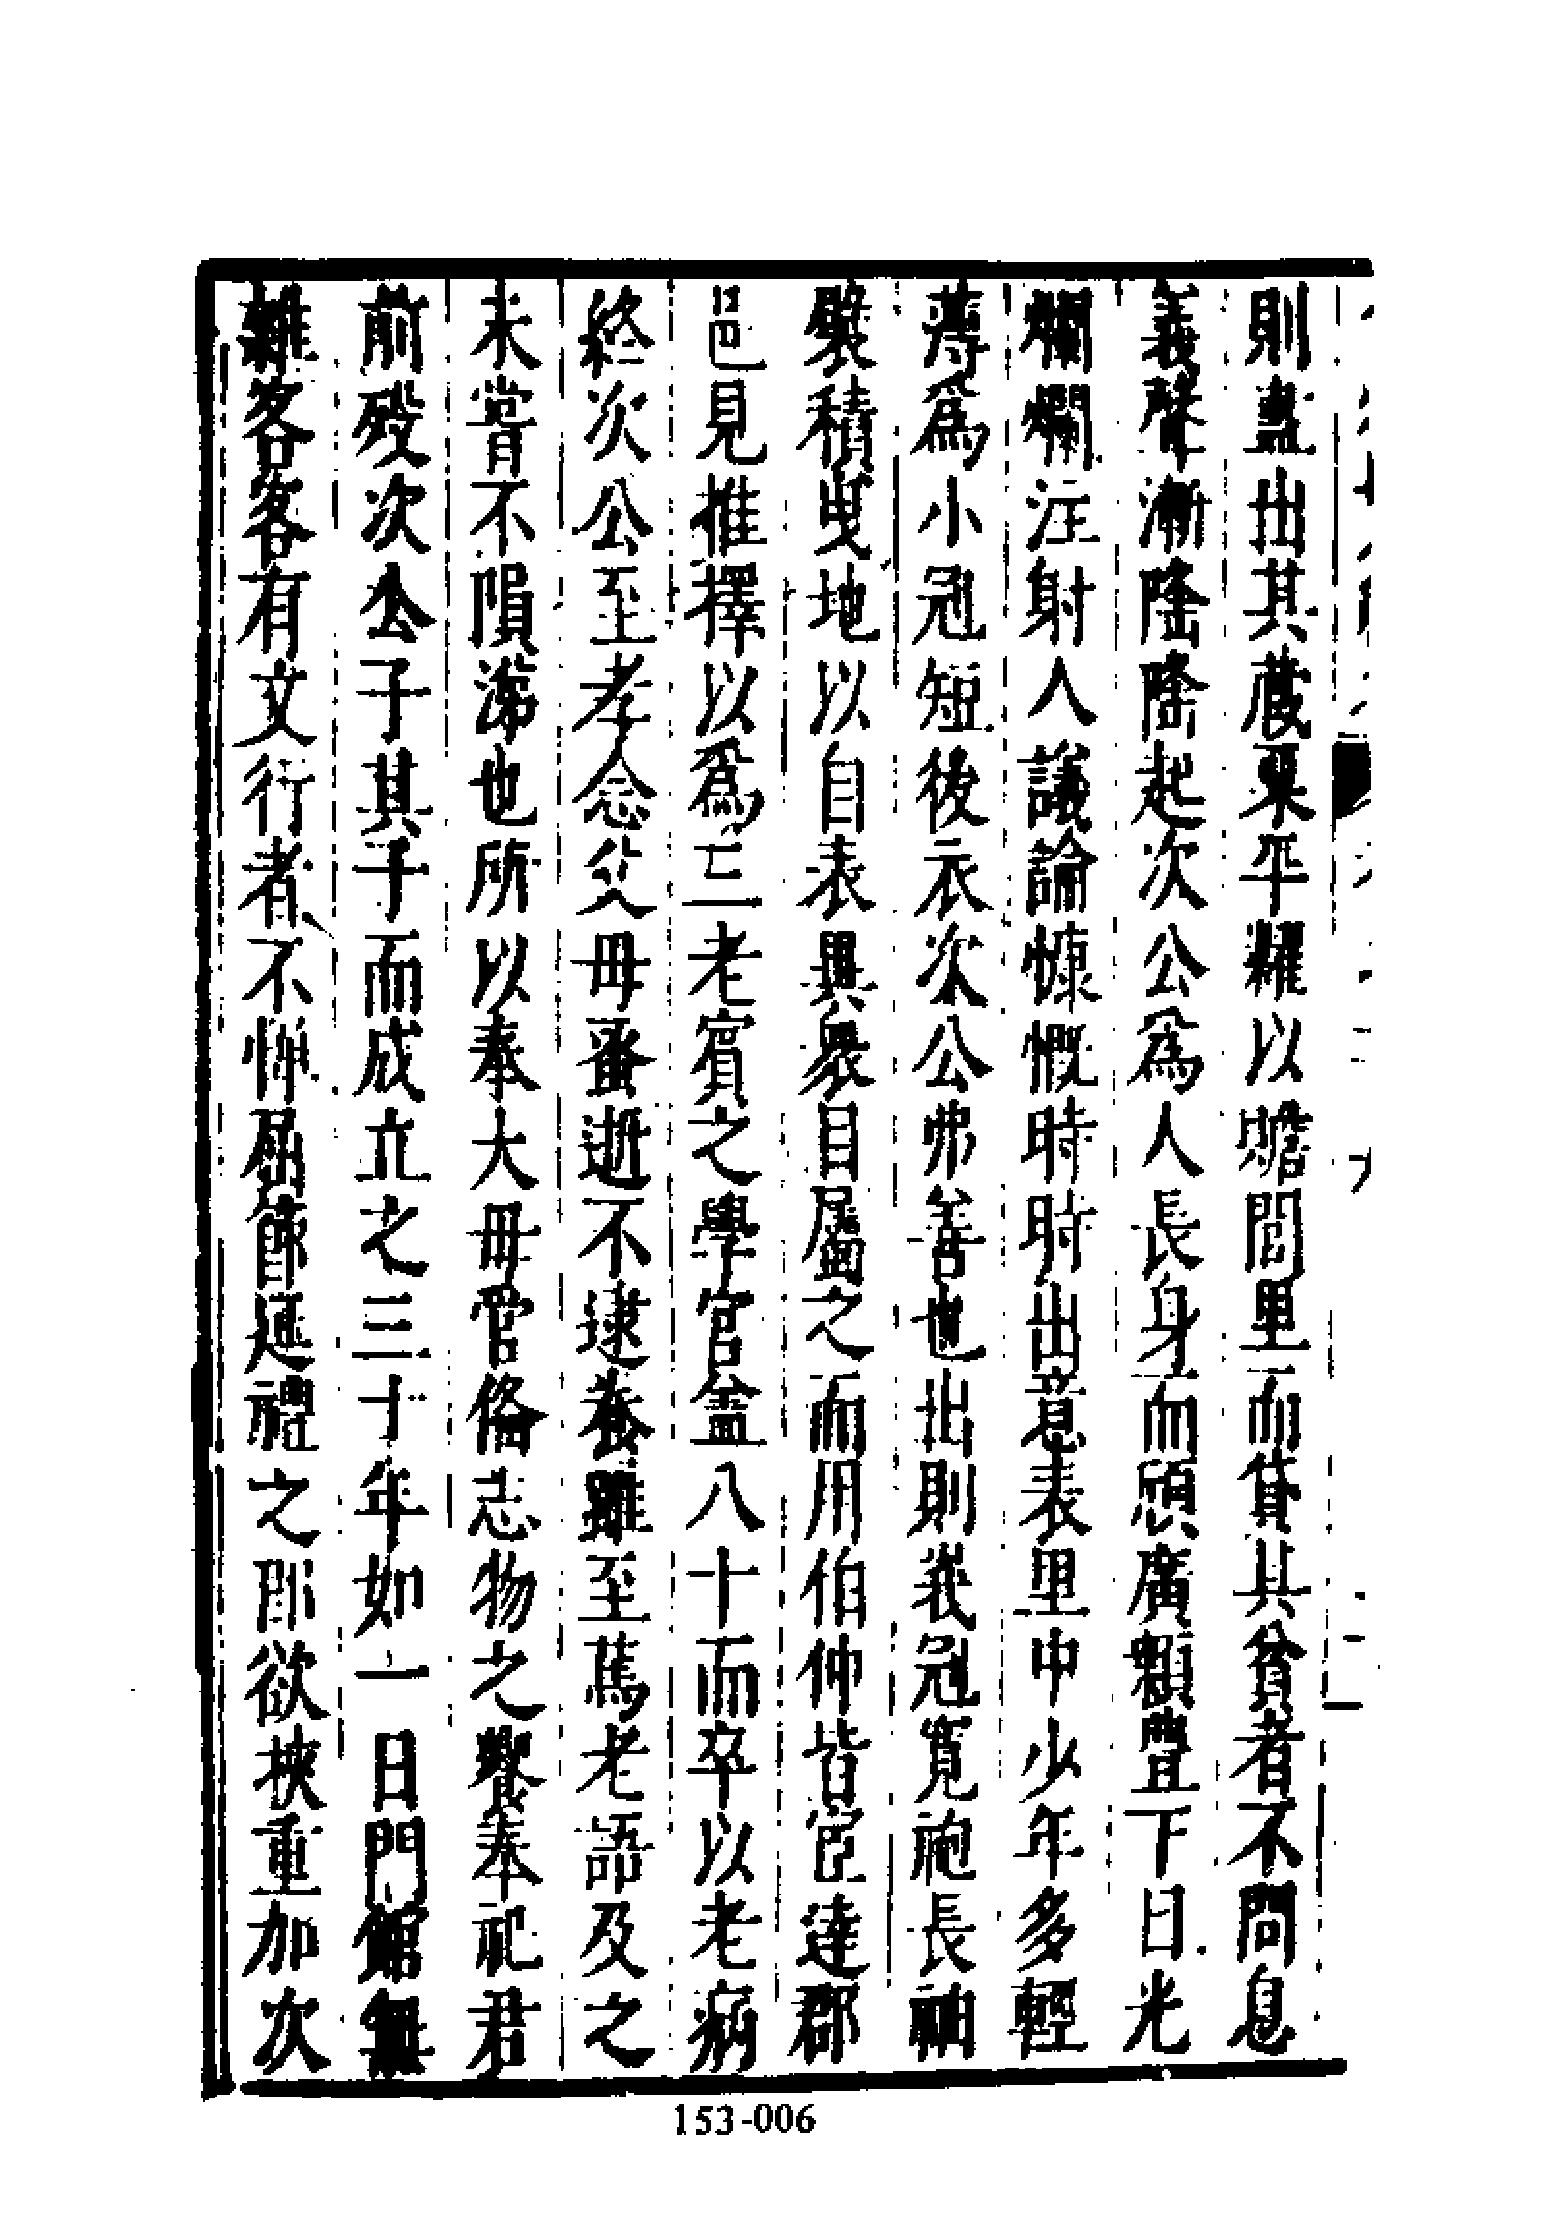 則盡出其蔵粟平糶以贍閭里而貸其貧者不問息
義聲漸隆隆起次公為人長身而頎廣顙豊下日光
爛爛注射人議論慷慨時時出意表里中少年多輕
薄爲小冠短後衣次公弗善也出則峩冠寬袍長袖
襞積曳地以自表異衆目屬之而用伯仲皆宦達郡
邑見推擇以爲三老賓之學官盖八十而卒以老病
終次公至孝念父母蚤逝不逮養雖至篤老語及之
未嘗不隕涕也所以奉大母管脩志物之饗奉祀君
前殁次公子其子而成立之三十年如一日門館無
雜客客有文行者不憚屈節延禮之即欲挾重加次
153-006